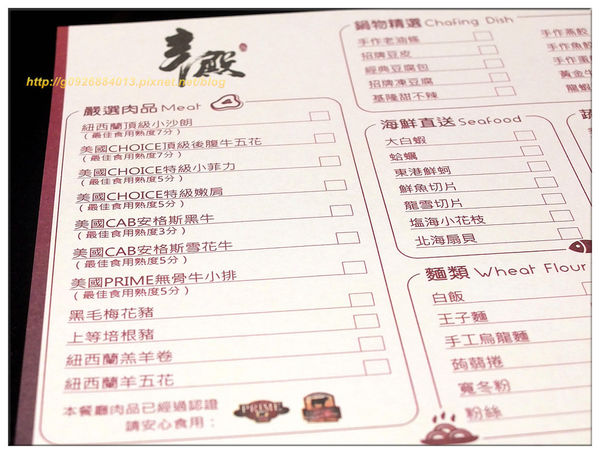 http://g0926684013.pixnet.net/blog
嚴選肉品 Meat
紐西蘭頂級小沙朗
(最佳食用熟度7分)
美國CHOICE頂級後腹牛五花
(最佳食用熟度7分)
美國CHOICE特級小菲力
(最佳食用熟度5分)
美國CHOICE特級嫩肩
(最佳食用熟度5分)
美國CAB安格斯黑牛
(最佳食用熟度3分)
美國CAB安格斯雪花牛
(最佳食用熟度5分)
美國PRIME無骨牛小排
(最佳食用熟度5分)
黑毛梅花豬
上等培根豬
紐西蘭羔羊卷
紐西蘭羊五花
本餐廳肉品已經過認證
請安心食用:
PRIME
鍋物精選 Chafing Dish
手作老油條
招牌豆皮
經典豆腐包
招牌凍豆腐
基隆甜不辣
手作燕餃
手作魚餃
手作蛋
黃金牛
龍蝦
海鮮直送 Seafood
大白蝦
蛤蠣
東港鮮蚵
鮮魚切片
龍雪切片
塩海小花枝
北海扇貝
麵類 Wheat Flour
白飯
王子麵
手工烏龍麵
蒟蒻捲
寬冬粉
粉絲